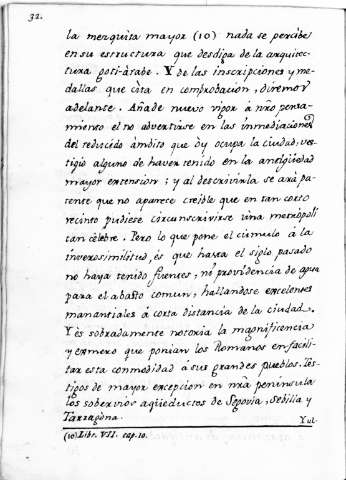 32.
la mezquita mayor (10) nada se percibe
en su estructura que desdiga de la arquitec-
tura goti-àrabe. Y de las inscripciones y me-
dallas que cita en comprobacion, diremos
adelante. Añade nuevo vigor à nr̃o pensa-
miento el no advertirse en las inmediaciones
del reducido àmbito que òy ocupa la ciudad, ves-
tigio alguno de haver tenido en la antigüedad
mayor extension; y al descrivirla se arà pa-
tente que no aparece creible que en tan corto
recinto pudiese circunscrivirse una metropoli
tan cèlebre. Pero lo que pone el cùmulo à la
inverosimilitud, és que hasta el siglo pasado
no haya tenido fuentes, ni providencia de agua
para el abasto comun, hallandose excelentes
manantiales à corta distancia de la ciudad.
Y ès sobradamente notoria la magnificencia
y esmero que ponian los Romanos en facili-
tar esta conmodidad à sus grandes pueblos. Tes-
tigos de mayor excepcion en nr̃a peninsula
los sobervios aqüeductos de Segovia, Sevilla y
Tarragona.
Yul-
(10) Libr. VII. cap. 10.